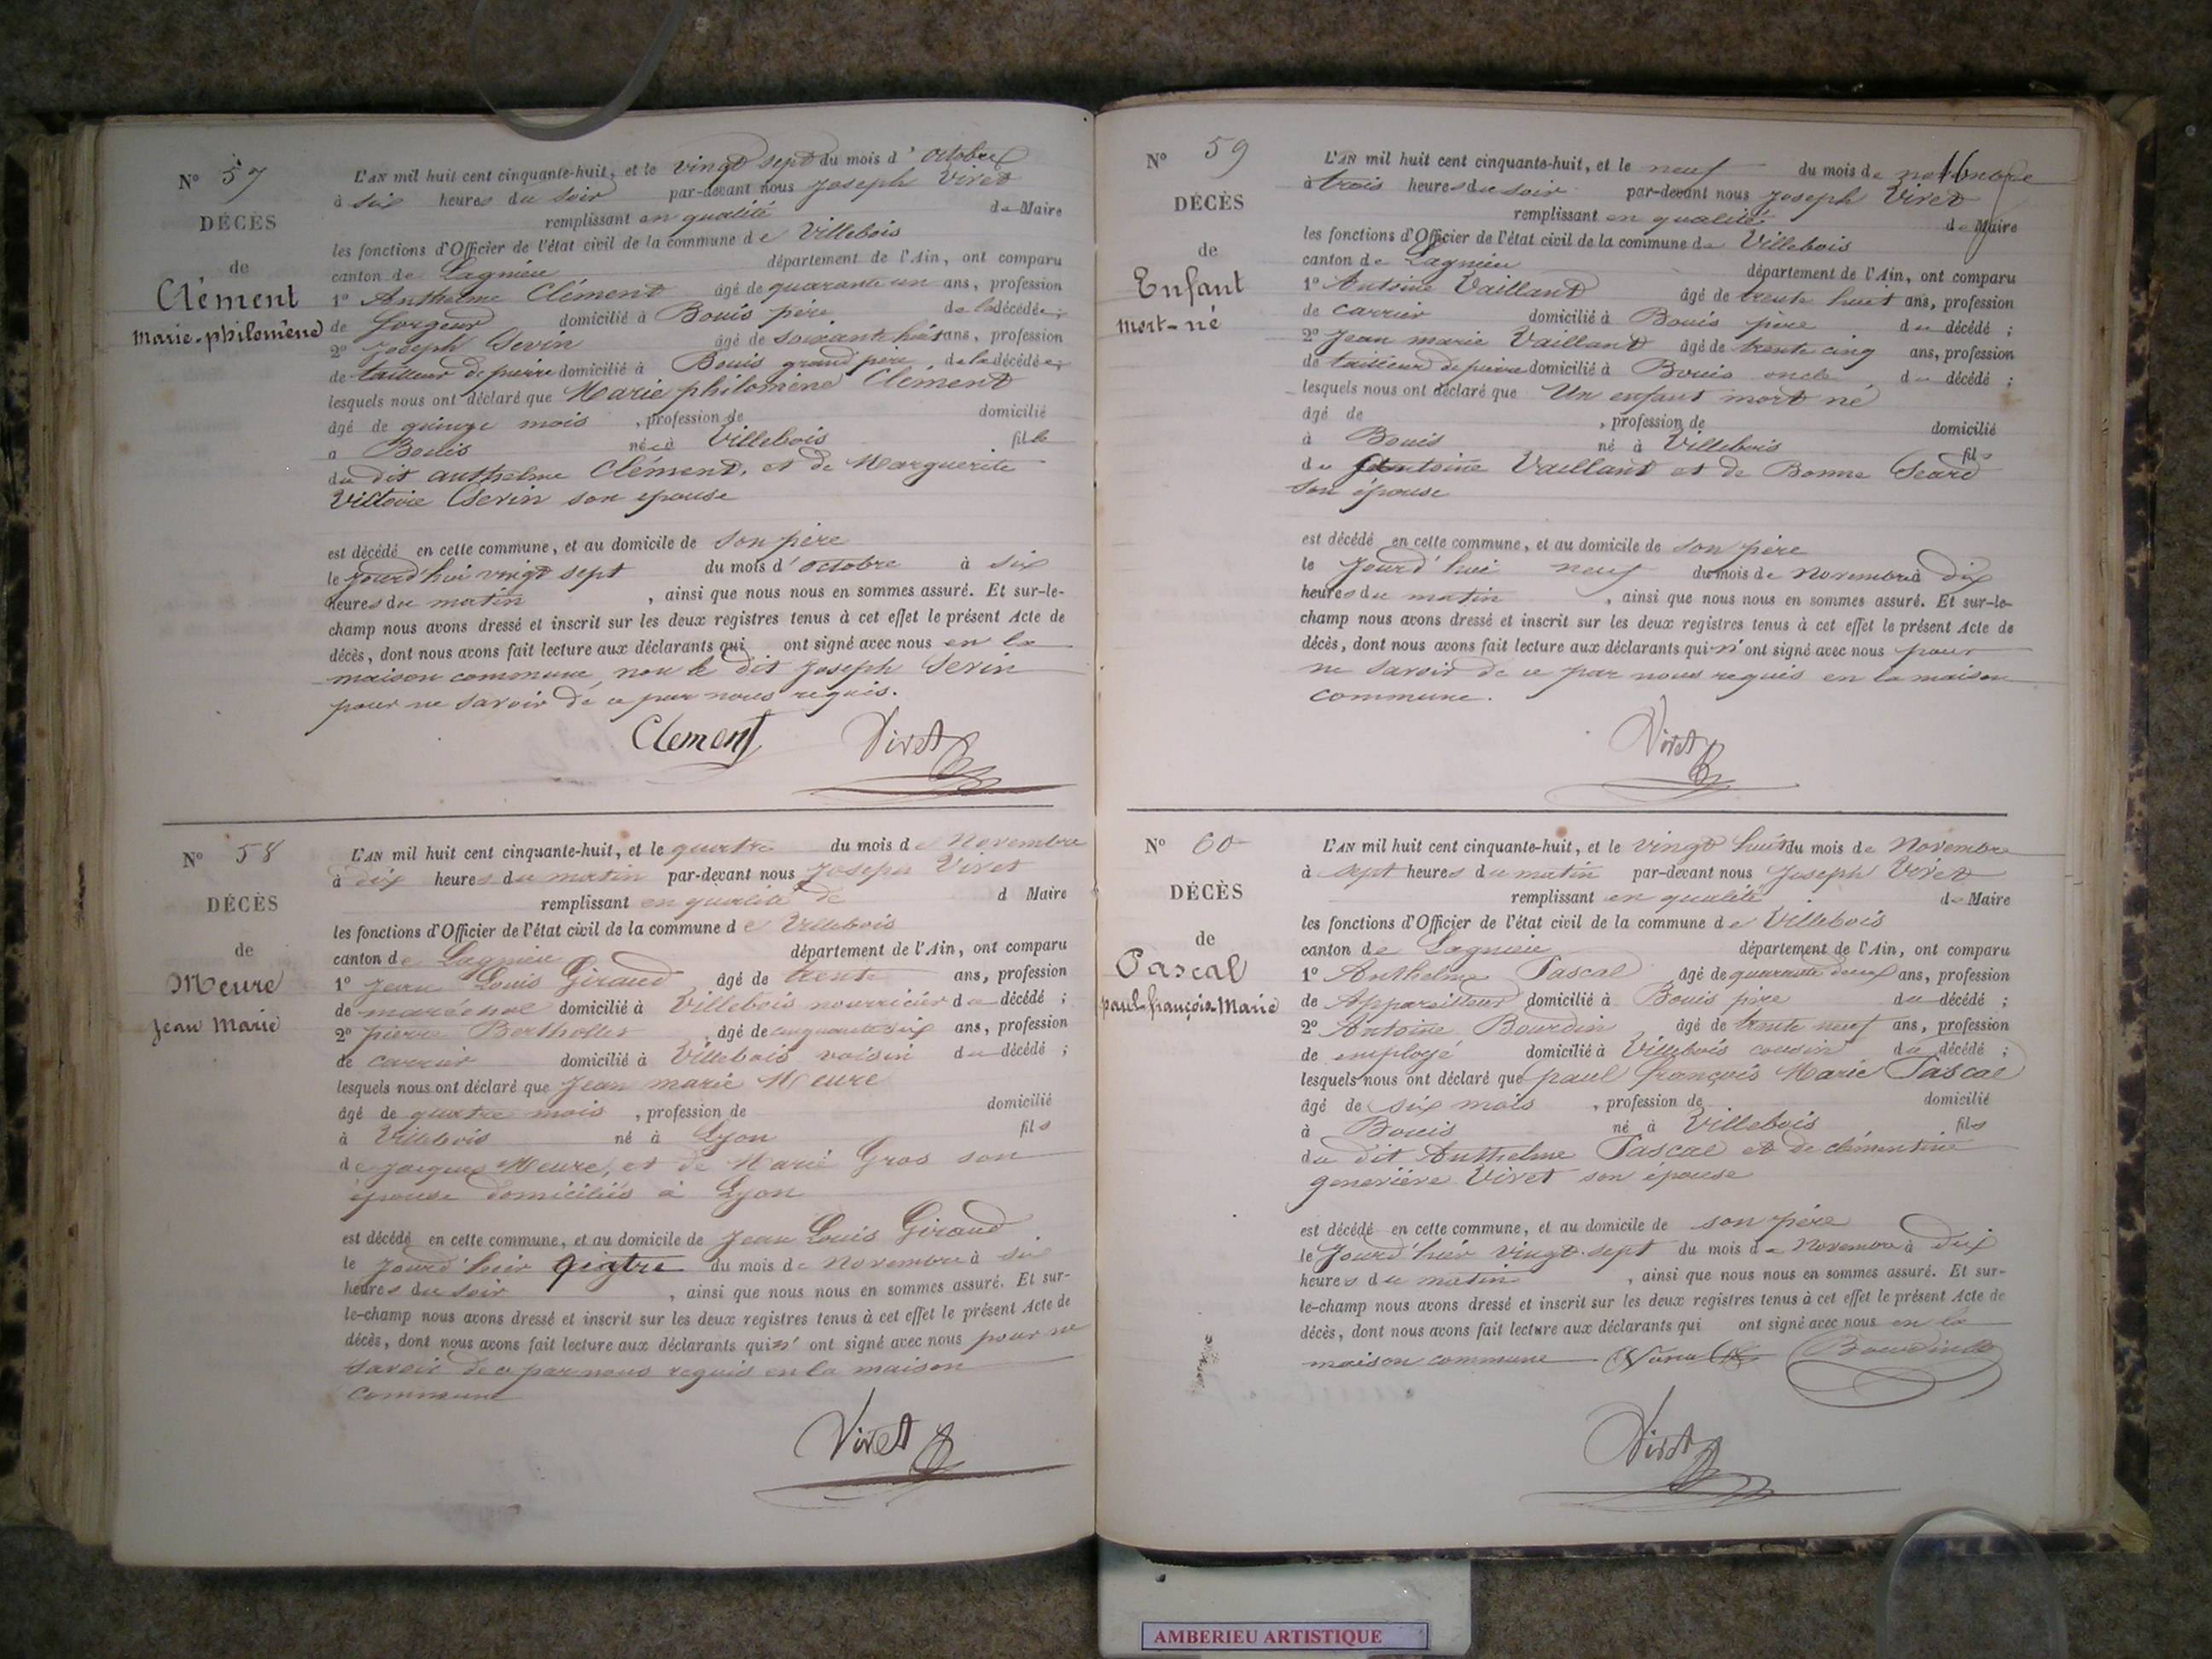 Nº 57
DÉCÈS
de
Clément
Marie-philomène
L'AN mil huit cent cinquante-huit, et le vingt sept du mois d'octobre
à six heures du soir par-devant nous Joseph Viret
remplissant en qualité de Maire
les fonctions d'Officier de l'état civil de la commune de Villebois
canton de Lagnieu département de l'Ain, ont comparu
1º Anthelme Clément âgé de quarante un ans, profession
de forgeur domicilié à Bouis père de la décédée;
2º Joseph Serin âgé de soixante huit ans, profession
de tailleur de pierre domicilié à Bouis grand père de la décédée;
lesquels nous ont déclaré que Marie philomène Clément
âgé de quinze mois, profession de domicilié
à Bouis née à Villebois fille
du dit anthelme Clément, et de Marguerite
Victoire Serin son épouse
est décédé en cette commune, et au domicile de son père
le jourd'hui vingt sept du mois d'octobre à six
heures du matin, ainsi que nous nous en sommes assuré. Et sur-le-
champ nous avons dressé et inscrit sur les deux registres tenus à cet effet le présent Acte de
décès, dont nous avons fait lecture aux déclarants qui ont signé avec nous en la
maison commune, non le dit Joseph Serin
pour ne savoir de ce par nous requis.
Clement Viret
Nº 58
DÉCÈS
de
Meure
Jean Marie
L'AN mil huit cent cinquante-huit, et le quatre du mois de Novembre
à dix heures du matin par-devant nous Joseph Viret
remplissant en qualité de d Maire
les fonctions d'Officier de l'état civil de la commune de Villebois
canton de Lagnieu département de l'Ain, ont comparu
1º Jean Louis Giraud, âgé de trente ans, profession
de maréchal domicilié à Villebois nourricier du décédé;
2º pierre Bertholler, âgé de cinquante six ans, profession
de carrier domicilié à Villebois voisin du décédé;
lesquels nous ont déclaré que Jean marie Meure
âgé de quatre mois, profession de domicilié
à Villebois né à Lyon fils
de Jacques Meure, et de Marie Gros son
épouse domiciliés à Lyon
est décédé en cette commune, et au domicile de Jean Louis Giraud
le jourd'hier du mois de Novembre à six
heures du soir, ainsi que nous nous en sommes assuré. Et sur-
le-champ nous avons dressé et inscrit sur les deux registres tenus à cet effet le présent Acte de
décès, dont nous avons fait lecture aux déclarants qui n'ont signé avec nous pour ne
savoir de ce par nous requis en la maison
commune
Viret
Nº 59
DÉCÈS
de
Enfant
Mort-né
L'AN mil huit cent cinquante-huit, et le neuf du mois de novembre
à trois heures du soir par-devant nous Joseph Viret
remplissant en qualité de Maire
les fonctions d'Officier de l'état civil de la commune de Villebois
canton de Lagnieu département de l'Ain, ont comparu
1º Antoine Vaillant âgé de trente huit ans, profession
de carrier domicilié à Bouis père du décédé;
2º Jean marie Vaillant âgé de trente cinq ans, profession
de tailleur de pierre domicilié à Bouis oncle du décédé;
lesquels nous ont déclaré que Un enfant mort né
âgé de, profession de domicilié
à Bouis né à Villebois fils
du Antoine Vaillant et de Bonne Seard
son épouse
est décédé en cette commune, et au domicile de son père
le jourd'hui neuf du mois de novembre à dix
heures du matin, ainsi que nous nous en sommes assuré. Et sur-le-
champ nous avons dressé et inscrit sur les deux registres tenus à cet effet le présent Acte de
décès, dont nous avons fait lecture aux déclarants qui n'ont signé avec nous pour
ne savoir de ce par nous requis en la maison
commune.
Viret
Nº 60
DÉCÈS
de
Pascal
paul-françois-Marie
L'AN mil huit cent cinquante-huit, et le vingt huit du mois de Novembre
à sept heures du matin par-devant nous Joseph Viret
remplissant en qualité de Maire
les fonctions d'Officier de l'état civil de la commune de Villebois
canton de Lagnieu département de l'Ain, ont comparu
1º Anthelme Pascal âgé de quarante deux ans, profession
de Appareilleur domicilié à Bouis père du décédé;
2º Antoine Bourdin âgé de trente neuf ans, profession
de employé domicilié à Villebois cousin du décédé;
lesquels nous ont déclaré que paul françois Marie Pascal
âgé de six mois, profession de domicilié
à Bouis né à Villebois fils
du dit Anthelme Pascal et de clémentine
geneviève Viret son épouse
est décédé en cette commune, et au domicile de son père
le jourd'hier vingt-sept du mois de Novembre à dix
heures du matin, ainsi que nous nous en sommes assuré. Et sur-
le-champ nous avons dressé et inscrit sur les deux registres tenus à cet effet le présent Acte de
décès, dont nous avons fait lecture aux déclarants qui ont signé avec nous en la
maison commune Bourdin
Viret
AMBERIEU ARTISTIQUE